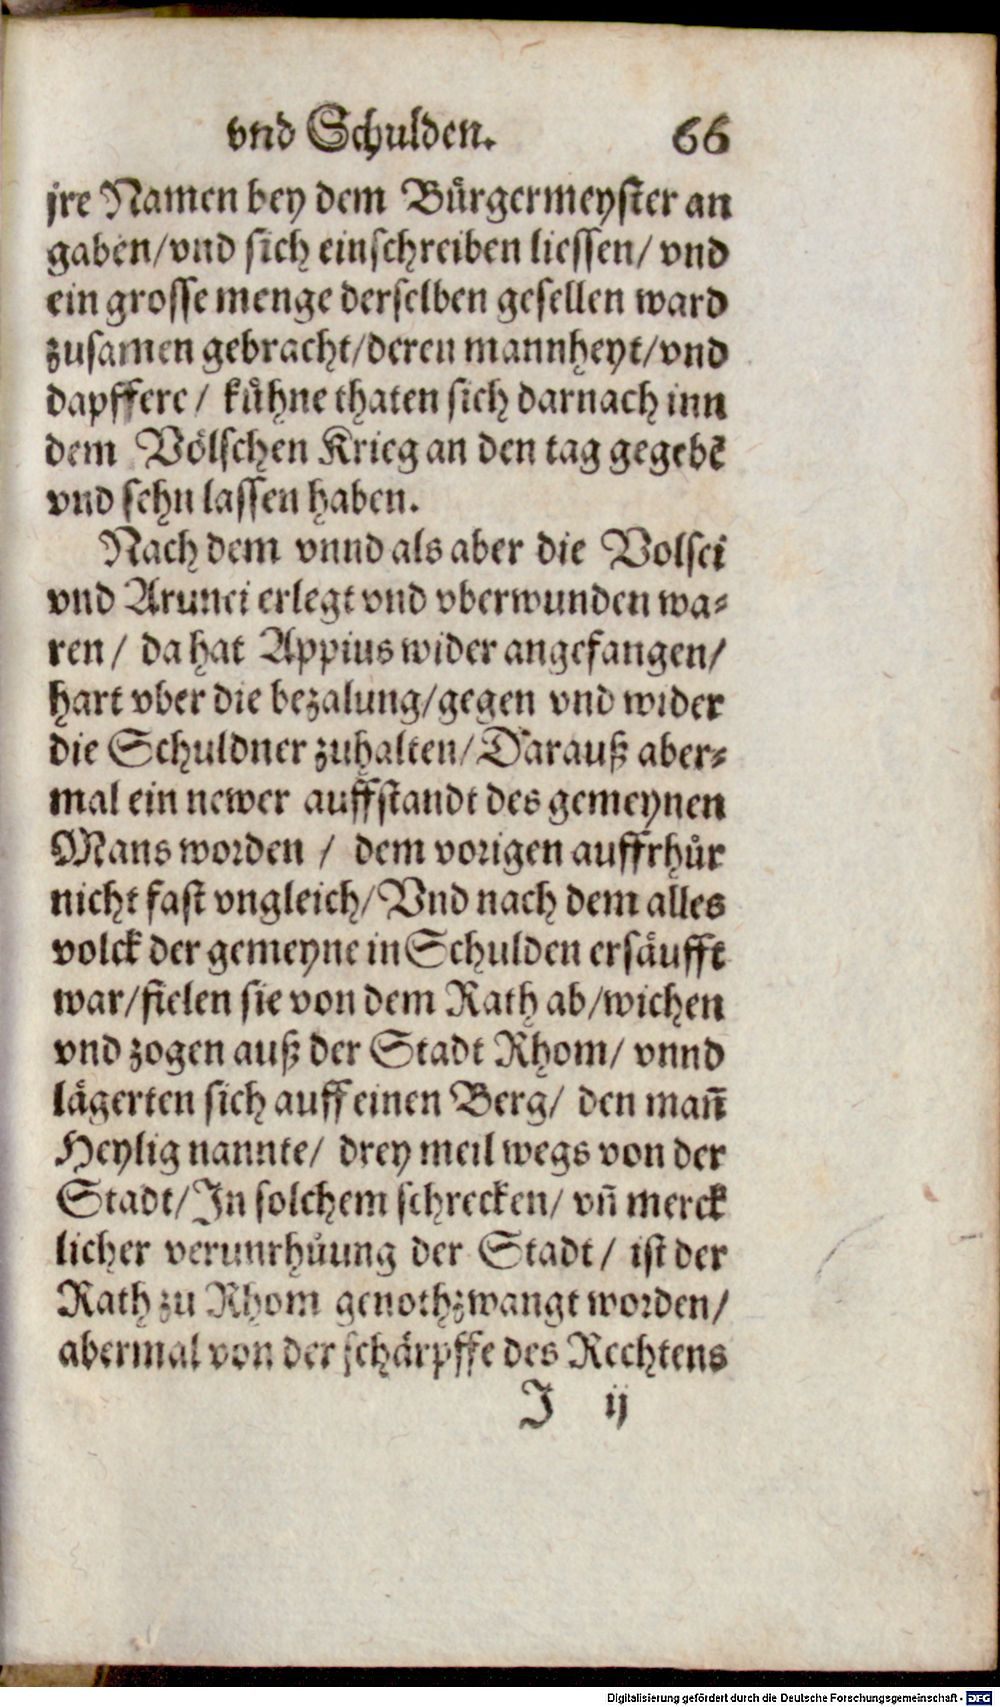 vnd Schulden. 66
jre Namen bey dem Bürgermeyster an
gaben/vnd sich einschreiben liessen/ vnd
ein grosse menge derselben gesellen ward
zusamen gebracht/deren mannheyt/vnd
dapffere / kühne thaten sich darnach inn
dem Völschen Krieg an den tag gegebē
vnd sehn lassen haben.
Nach dem vnnd als aber die Volsci
vnd Arunci erlegt vnd vberwunden wa-
ren / da hat Appius wider angefangen/
hart vber die bezalung/gegen vnd wider
die Schuldner zuhalten/ Darauß aber-
mal ein newer auffstandt des gemeynen
Mans worden / dem vorigen auffrhůr
nicht fast vngleich/ Vnd nach dem alles
volck der gemeyne in Schulden ersäufft
war/fielen sie von dem Rath ab/wichen
vnd zogen auß der Stadt Rhom/ vnnd
lägerten sich auff einen Berg/ den mañ
Heylig nannte/ drey meil wegs von der
Stadt/ In solchem schrecken/ vñ merck
licher verunrhůung der Stadt/ ist der
Rath zu Rhom genothzwangt worden/
abermal von der schärpffe des Rechtens
J ij
Digitalisierung gefördert durch die Deutsche Forschungsgemeinschaft - DFG